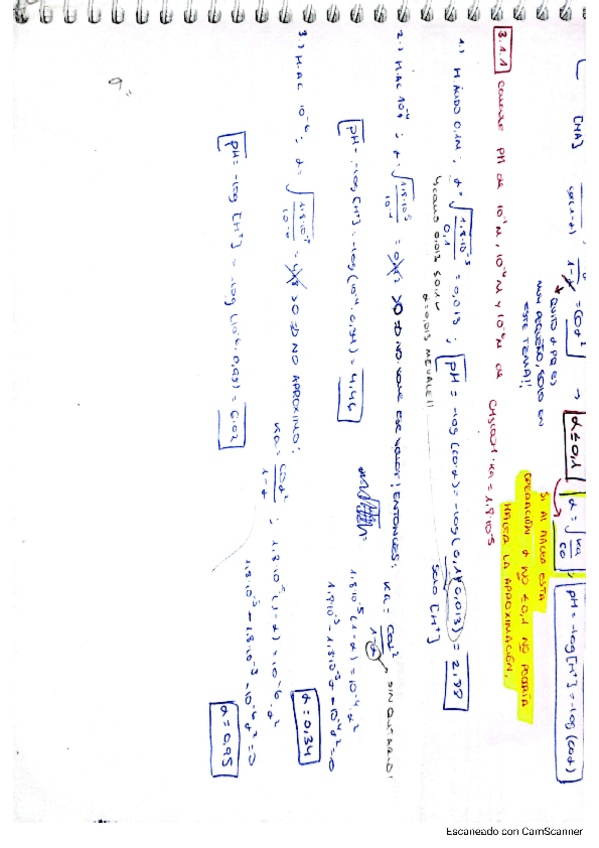 [HA]
Ka = c₀α²
α ≤ 0,1
α = √(Ka/c₀) ; pH = -log[H⁺] = -log(c₀α)
QUITO α PQ ES
MUY PEQUEÑO, SOLO EN
ESTE TEMA!!
SI AL HACER ESTA
OPERACIÓN α NO ≤ 0,1 NO PODRÍA
HACER LA APROXIMACIÓN.
3.1.1 pH de 10⁻¹M, 10⁻⁴M y 10⁻⁶M de CH₃COOH. Ka = 1,8·10⁻⁵
1.) 0,1M ; α = √(1,8·10⁻⁵/0,1) = 0,013 ; pH = -log(c₀·α) = -log(0,1·0,013) = 2,88
COMO 0,013 ≤ 0,1
α = 0,013 ME VALE!!
SOLO [H⁺]
2.) HAc 10⁻⁴ ; α = √(1,8·10⁻⁵/10⁻⁴) = ⇒ NO ESE VALOR ; ENTONCES: Ka = c₀α²/1-α
SIN QUITARLO!
1,8·10⁻⁵(1-α) = 10⁻⁴·α²
1,8·10⁻⁵ - 1,8·10⁻⁵α - 10⁻⁴α² = 0
α = 0,34
pH = -log[H⁺] = -log(10⁻⁴·0,34) = 4,46
3.) HAc 10⁻⁶ ; α = √(1,8·10⁻⁵/10⁻⁶) = ⇒ NO APROXIMO ;
Ka = c₀α²/1-α ; 1,8·10⁻⁵(1-α) = 10⁻⁶·α²
1,8·10⁻⁵ - 1,8·10⁻⁵α - 10⁻⁶α² = 0
α = 0,95
pH = -log[H⁺] = -log(10⁻⁶·0,95) = 6,02
Escaneado con CamScanner